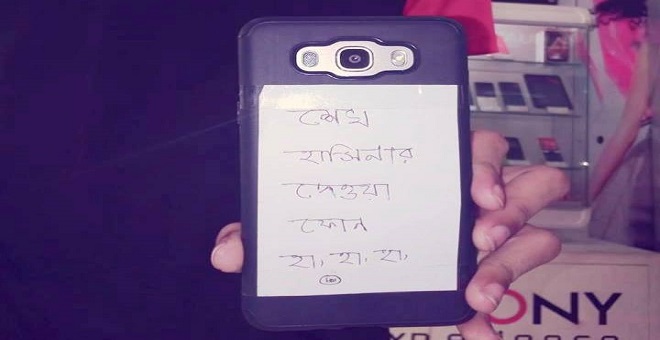 শেখ
হাসিনার
দেওয়া
ফোন
হা, হা, হা,
ONY